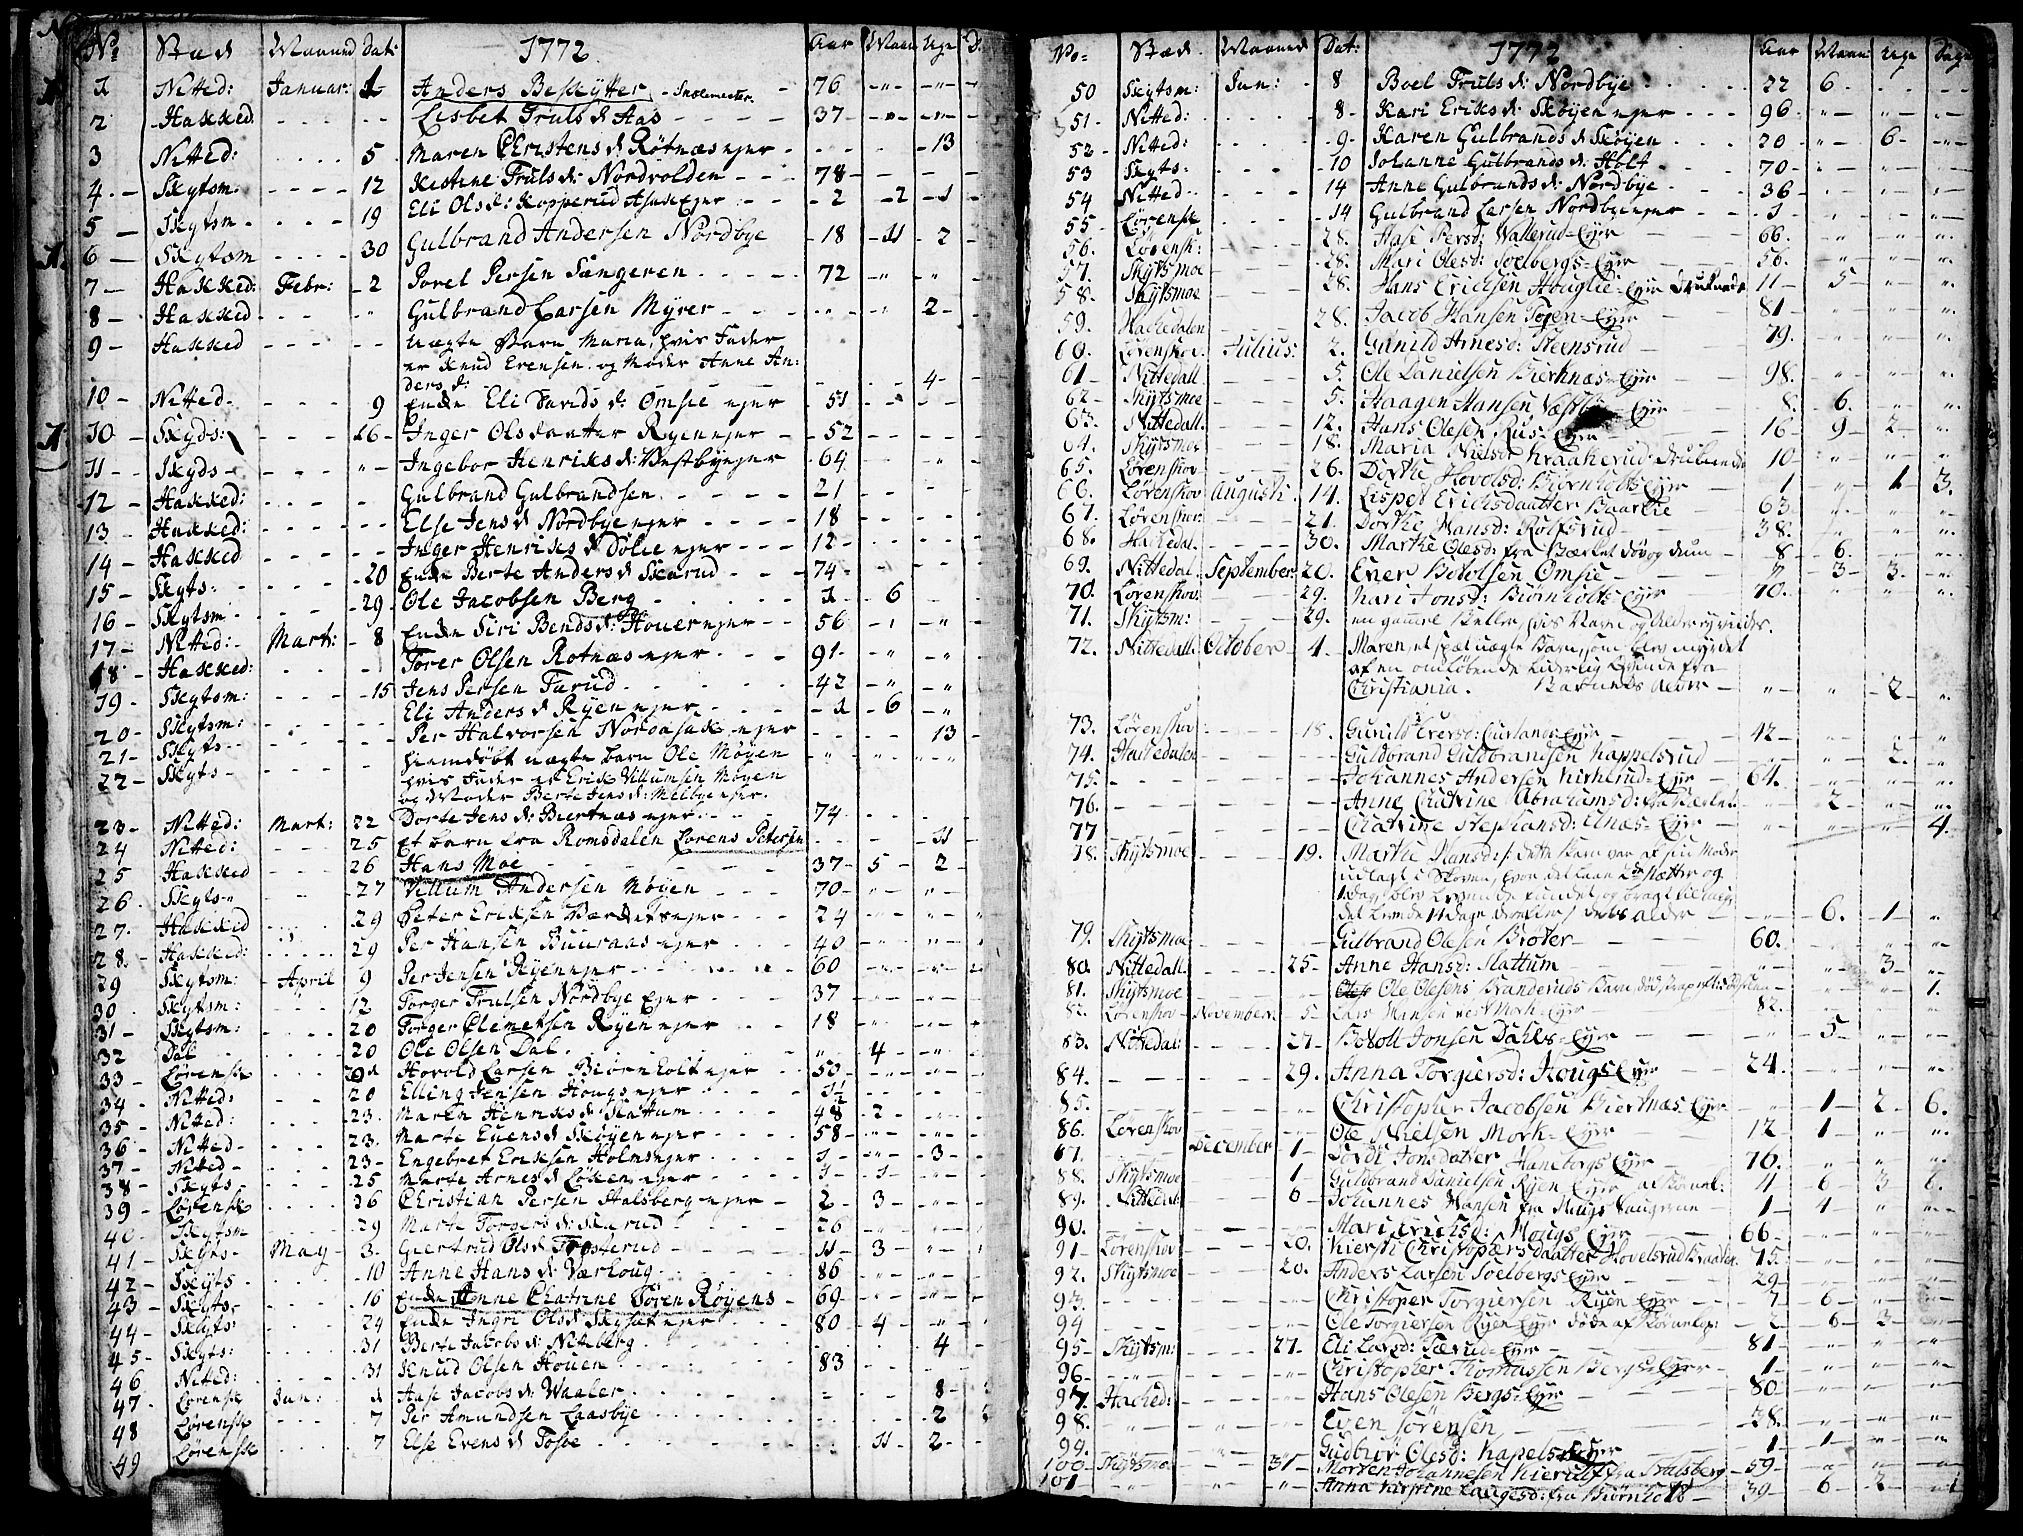 No Stad Maaned Dat: 1772 Aar Maan Uge D.
1 Nitted: Januar: 1 Anders Beskytter - Skolemester. 76
2 Hakked Lisbet Truls d: Aas 37
3 Nitted: 5 Maren Christens d: Rötnæs ejer 13
4 Skytsm: 12 Kistine Truls d: Nordvolden 78
5 Skytsm 19 Eli Ols d: Kopperud Asak Ejer 2 2 1
6 Skytsm 30 Gulbrand Andersen Nordbye 18 11 2
7 Hakked: Febr: 2 Jorel Persen Sangeren 72
8 Hakked Gulbrand Larsen Myrer 2
9 Hakked Uægte Barn Maria, hvis Fader
er Knud Evensen og Moder Anne An:
ders d: 4
10 Nitted 9 Enke Eli Davids d: Omsie ejer 51
10 Skyds: 16 Inger Olsdaatter Ryen ejer 52
11 Skyds Ingebor Henriks d: Vestbyejer 64
12 Hakked: Gulbrand Gulbrandsen 21
13 Hakked: Else Jens d: Nordbye ejer 18
14 Hakked Inger Henriks d: Dölie ejer 12
15 Skyts: 20 Enke Berte Anders d: Skarud 74
16 Skytsm 29 Ole Jacobsen Berg 1 6
17 Nitted: Mart: 8 Enke Siri Bends d: Houer ejer 56
18 Hakked: Torer Olsen Rotnæs ejer 91
19 Skytsm: 15 Jens Persen Farud 42
20 Skytsm: Eli Anders d: Ryen ejer 1 6
21 Skyts Per Halvorsen Nordasak ejer 13
22 Skyts hiemdöbt uægte barn Ole Möyen
hvis Fader er Erik Villumsen Möyen
og Moder Berte Jens d: Melbye ejer.
23 Nitted: Mart: 22 Dorte Jens d: Biertnæs ejer 74
24 Nitted: 25 Et barn fra Romsdalen Lorens Petersen 11
25 Hakked 26 Hans Moe 37 5 2
26 Skyts 27 Villum Andersen Möyen 70
27. Hakked 29 Peter Eriksen ejer 24
28 Hakked: 29 Per Hansen Buuraas ejer 40
29 Skytsm: April 9 Per Jensen Ryen ejer 60
30 Skytsm: 12 Torger Trulsen Nordbye Ejer 37
31 Skytsm: 20 Torger Clemetsen Ryen ejer 18
32 Dal 20 Ole Olsen Dal 4
33 Lørensk Hovold Larsen Biørnholt ejer 50
34 Nitted: 20 Elling Jensen Hougs ejer 1½
35 Nitted: 23. Maren Henriks d: Slattum 48 2
36 Nitted 23. Marte Euens d: Skøyen ejer 58
37 Nitted 23 Engebret Eriksen Holms ejer 1 3
38 Skyts 25 Marte Arnes d: Löken ejer 1 1
39 Lörensk 26 Christian Persen Stalsberg ejer 2 3
40 Skytsm 29 Marte Torgers d: Skarud 26
41 Skyts May 3. Giertrud Ols d: Trosterud 11 3
42 Skyts 10 Anne Hans d: Værhoug 86
43 Skyts 16 Enke Anne Chatrine Sören Röyens 69
44 Skyts: 24 Enke Ingri Ols d: Skyset ejer 80 4
45 Skyts: 31 Berte Jacobs d: Niteberg 4
46 Nited: 31 Knud Olsen Houen 83
47. Lörensk Jun: 1 Aase Jacobs d: Waaler 8
48 Lörensk 7 Per Amundsen Laasbye 2
49 Lörensk 7 Else Evens d: Tosoe 11 2
No Stæd Maaned Dat: 1772 Aar Maan: Uge Dage
50 Skytsm: Jun: 8 Boel Truls d: Nordbye 22 6
51 Nitted: 8 Kari Eriks d: Sköyen ejer 96
52 Nitted: 9 Karen Gulbrands d: Sköyen 20 6
53 Skyts: 10 Johanne Gulbrands d: Holt 70
54 Nitted 14 Anne Gulbrands d: Nordbye 36
55 Lørensk 14 Gulbrand Larsen Nordbye ejer 1
56. Lørensk: 28. Aase Persd: Wallerud-Ejer 66.
57. Skytsmoe 28. Mari Olesd: Soelbergs-Ejer 56.
58. Skytsmoe 28. Hans Erichsen Houglie-Ejer Druknede 11 5
59. Hachedalen 28. Jacob Hansen Tøjen-Ejer 81
60. Lørenskov. Julius: 2. Gunild Arnesd: Steensrud 79.
61 Nittedall 5. Ole Danielsen Bierknæs-Ejer 98.
62 Skytsmoe 5. Haagen Hansen Ejer 8. 6.
63. Nittedall. 12. Hans Olesen Rus-Ejer 16 9 2
64. Skytsmoe 18. Maria Nielsd: Kraakerud druknede 10
65. Lørenskov 26. Dorthe Hovelsd: Biørnholts Ejer 1 1 3.
66. Lørenskov Augusti. 14. Lispet Erichsdaatter Baarlie 63
67. Lørenskov. 21. Dorthe Hansd: Rolfsrud 38.
68. Hachedal. 30. Marthe Olesd: fra døv og dum 8 6.
69. Nittedal September: 20. Ener Botolsen Omsie 7 3 3.
70. Lørenskov. 29. Mari Jonsd: Biørnholts Ejer 70.
71. Skytsm: 29. en gammel Betler, hvis Navn og Alder ej vides.
72. Nittedall. October 4. Maren, et spæt uægte Barn, som blev myrdet
af en omløbende Liderlig Qvinde fra
Christiania. Barnets Alder 2
73. Lørenskov 18. Gunild Eversd: Curlands Ejer 42
74. Hachedalen Guldbrand Guldbrandsen Kappelsrud 2.
75. Johannes Andersen Kirkerud-Ejer 64.
76. Anne Chatrine Abrahamsd: 2
77 Chatrine Stephansd: Elnæs-Ejer 4.
78. Skytsmoe 19. Marthe Hansd: dette Barn var af sin Moder
udlagt i Skoven, hvor det laae 2de Nætter og
1 dag, blev levende fundet, og bragt til
det levede 14 dage derefter / dets alder 6. 1
79. Skytsmoe Gulbrand Olesen Brøter 60.
80. Nittedall. 25. Anne Hansd: Slattum 3
81. Skytsmoe Ole Olesens Branderuds Barn 1.
82. Lørenskov November 5. Lars Hansen Mork-Ejer 82.
83. Nittedal: 27. Botoll Jonsen Dahls-Ejer 5
84. 29. Anna Torgiersd: Hougs Ejer 24.
85. Christopher Jacobsen Biertnæs-Ejer 1 2 6.
86. Lørenskov Ole Nielsen Mork-Ejer 12 1
87. December 1 Jonsdatter Hanebergs Ejer 76.
88. Skytsmoe 1 Guldbrand Danielsen Ryen Ejer 4 6 3 6.
89. Nittedal: 6 Johannes Hansen fra Haugs 1 4
90. Mari Erichsd: Hougs Ejer 66
91 Lørenskov 20. Kiersti Christophersdaatter Hovelsrud 75.
92. Skytsmoe 20. Anders Larsen Soelbergs Ejer 29
93. Christopher Torgiersen Ryen Ejer 7 6
94 Ole Torgiersen Ryen Ejer døde af 2 6 3
95 Skytsm: 27. Eli Larsd: Farud-Ejer 81
96 Christopher Thomassen Bergs Ejer 1
97. Hached: Hans Olesen Bergs-Ejer 80
98. Even Sørensen 38.
99. Gudbiør Olesd: Kapels 1 1
100 Skytsmo 31 Morten Johannesen Kierulf fra Stalsberg 59
101 Anna Kirstine Laugesd: fra Biørnholt 39 6 2 1